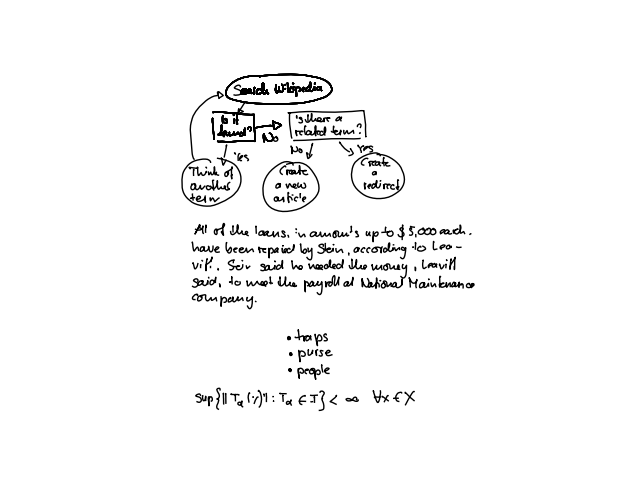 Search Wikipedia
Is it
found?
No
Is there a
related term?
Yes
No
Yes
Think of
another
term
Create
a new
article
Create
a
redirect
All of the loans, in amounts up to $5,000 each,
have been repaid by Stein, according to Lea-
vitt. Stein said he needed the money, Leavitt
said, to meet the payroll at National Maintenance
company.
• traps
• purse
• people
sup{‖T_α(x)‖ : T_α ∈ J} < ∞ ∀x ∈ X